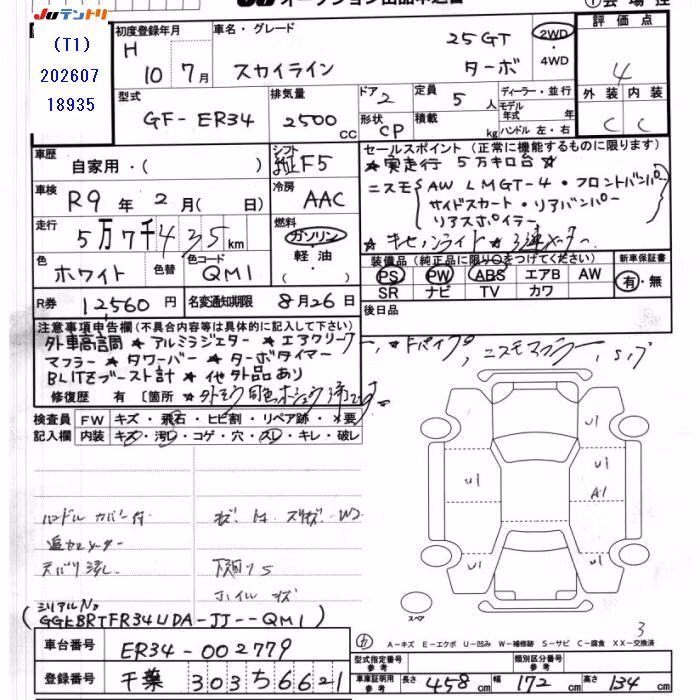 JUテントリ
オークション出品申込書
会場控
(T1)
202607
18935
初度登録年月
H 10 7月
車名・グレード
スカイライン
25GT
ターボ
2WD
・4WD
評価点
4
外装 内装
C C
型式
GF-ER34
排気量
2500 CC
ドア 2
形状 CP
定員 5 人
積載 kg
ディーラー・並行
モデル年式 年
ハンドル 左・右
車歴
自家用・( )
シフト
F5
車検
R9年2月( 日)
冷房
AAC
走行
5万7千435km
燃料
ガソリン
軽油
・( )
色
ホワイト
色替
色コード
QM1
R券 12,560円
名変通知期限 8月26日
セールスポイント (正常に機能するものに限ります)
★実走行 5万キロ台☆
ニスモ AW LMGT-4・フロントバンパー
サイドスカート・リアバンパー
リアスポイラー
★キセノンライト★3連メーター
装備品(純正品に限り○をつけてください)
PS PW ABS エアB AW
SR ナビ TV カワ
新車保証書
有・無
後日品
注意事項申告欄(不具合内容等は具体的に記入して下さい)
外車高調 ★アルミラジエター ★エアクリーナー、★Fパイプ、ニスモマフラー、
マフラー ★タワーバー ★ターボタイマー
BLITZブースト計 ★他外品あり
修復歴 有 [箇所
検査員記入欄
FW キズ・飛石・ヒビ割・リペア跡・×要
内装 キズ・汚レ・コゲ・穴・スレ・キレ・破レ
ハンドルカバー付
追加メーター
天バリ
下廻りS
ホイルキズ
U1
U1 U1
A1
U1 U1
スペア
3
シリアルNo
(GGKBRTFR34UDA-JJ--QM1)
A-キズ E-エクボ U-凹み W-補修跡 S-サビ C-腐食 XX-交換済
車台番号 ER34-002779
登録番号 千葉 303 ち 6621
型式指定番号 参考
類別区分番号 参考
車庫証明用 参考 長さ 458cm 幅 172cm 高さ 134cm